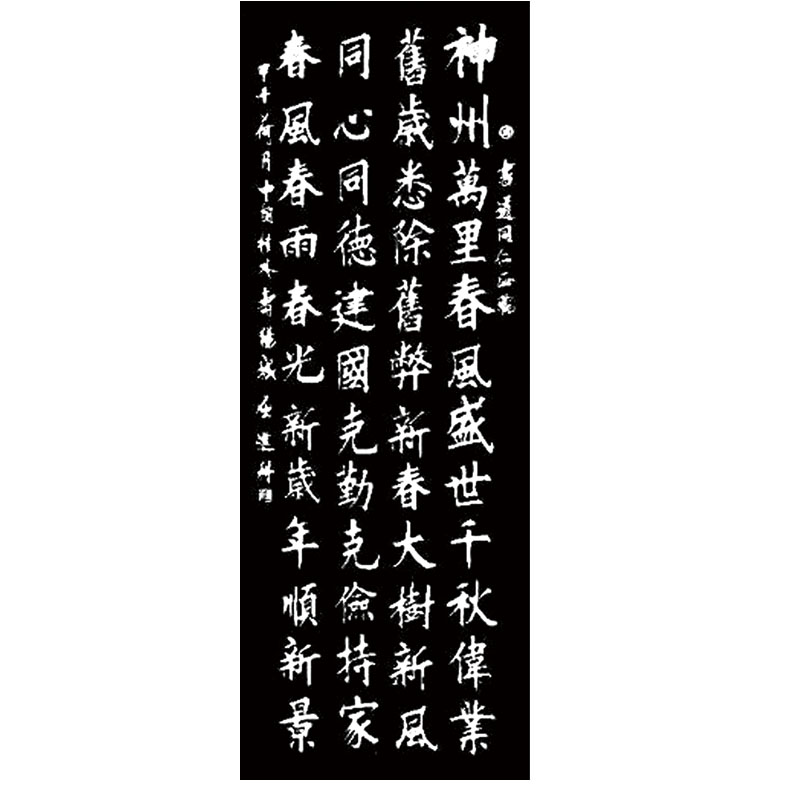 神州萬里春風盛世千秋偉業
舊歲悉除舊弊新春大樹新風
同心同德建國克勤克儉持家
春風春雨春光新歲年順新景
書道同仁正
甲午荷月中國桂林